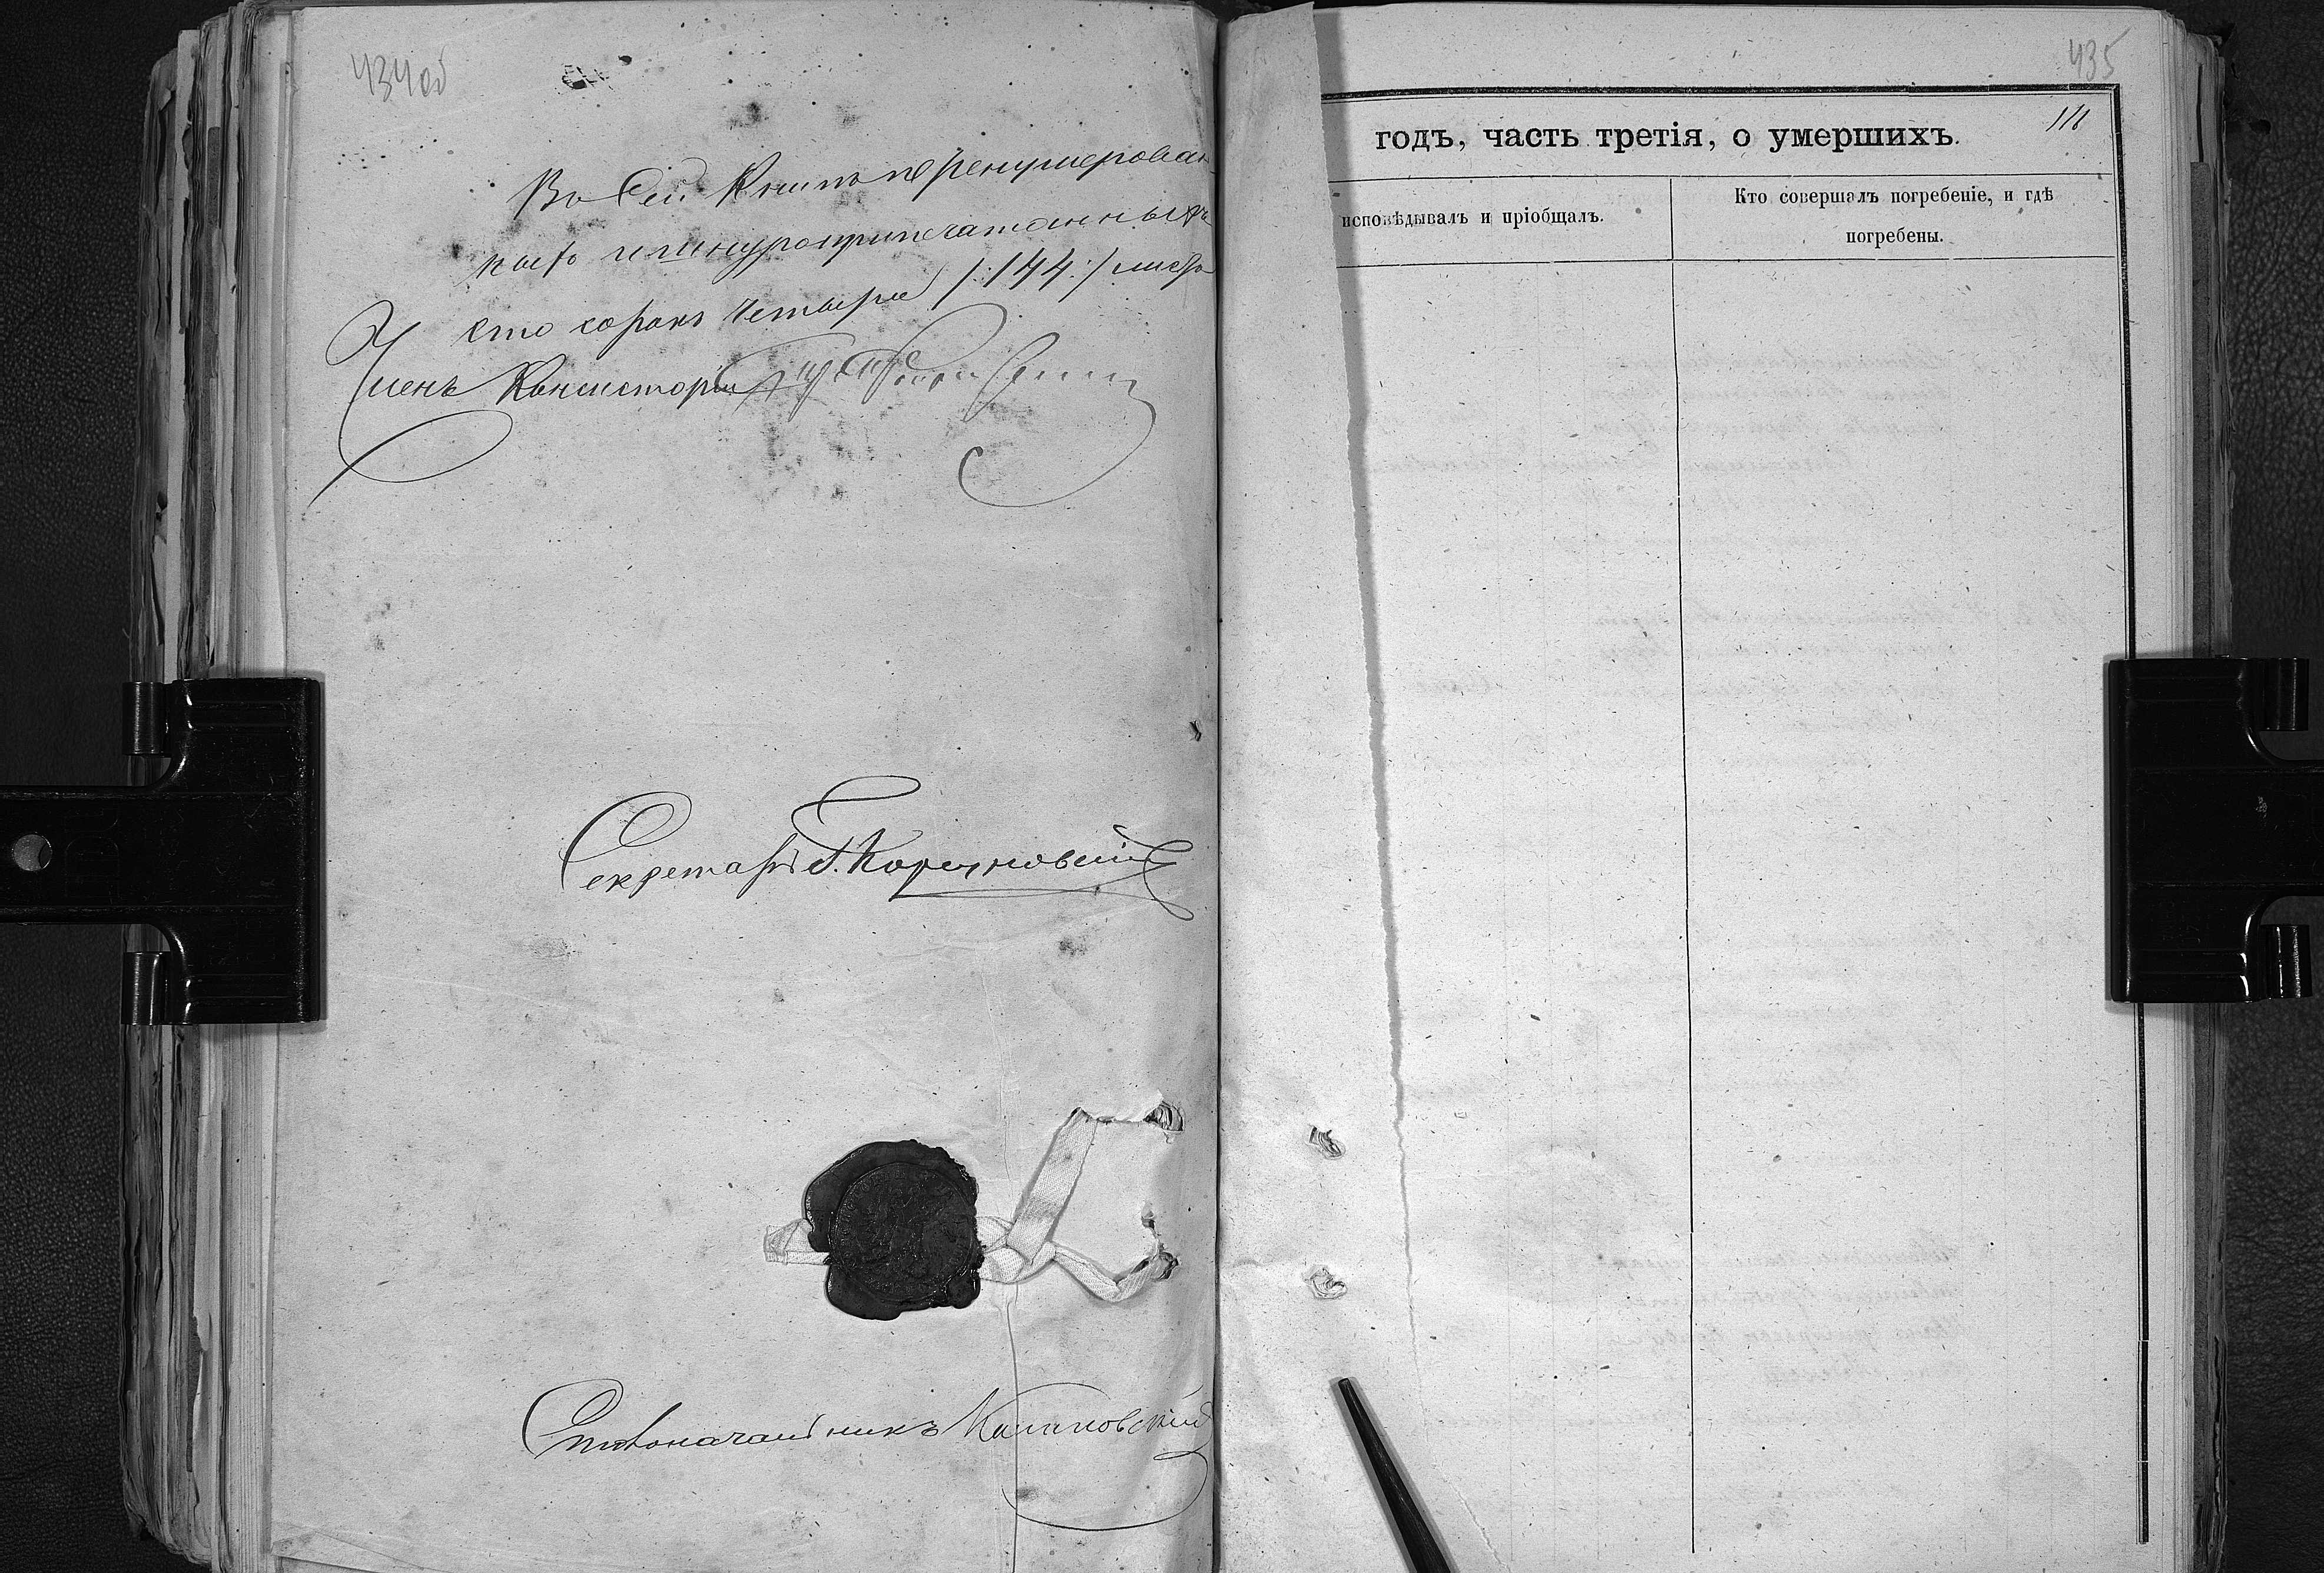 434об
Въ Сей Книгѣ пренумерован
ныхъ и шнуроприпечатанныхъ
сто сорокъ четыре /:144:/ листа
Членъ Консисторіи
Секретарь
Столоначальникъ
435
118
годъ, часть третія, о умершихъ.
исповѣдывалъ и пріобщалъ.
Кто совершалъ погребеніе, и гдѣ
погребены.